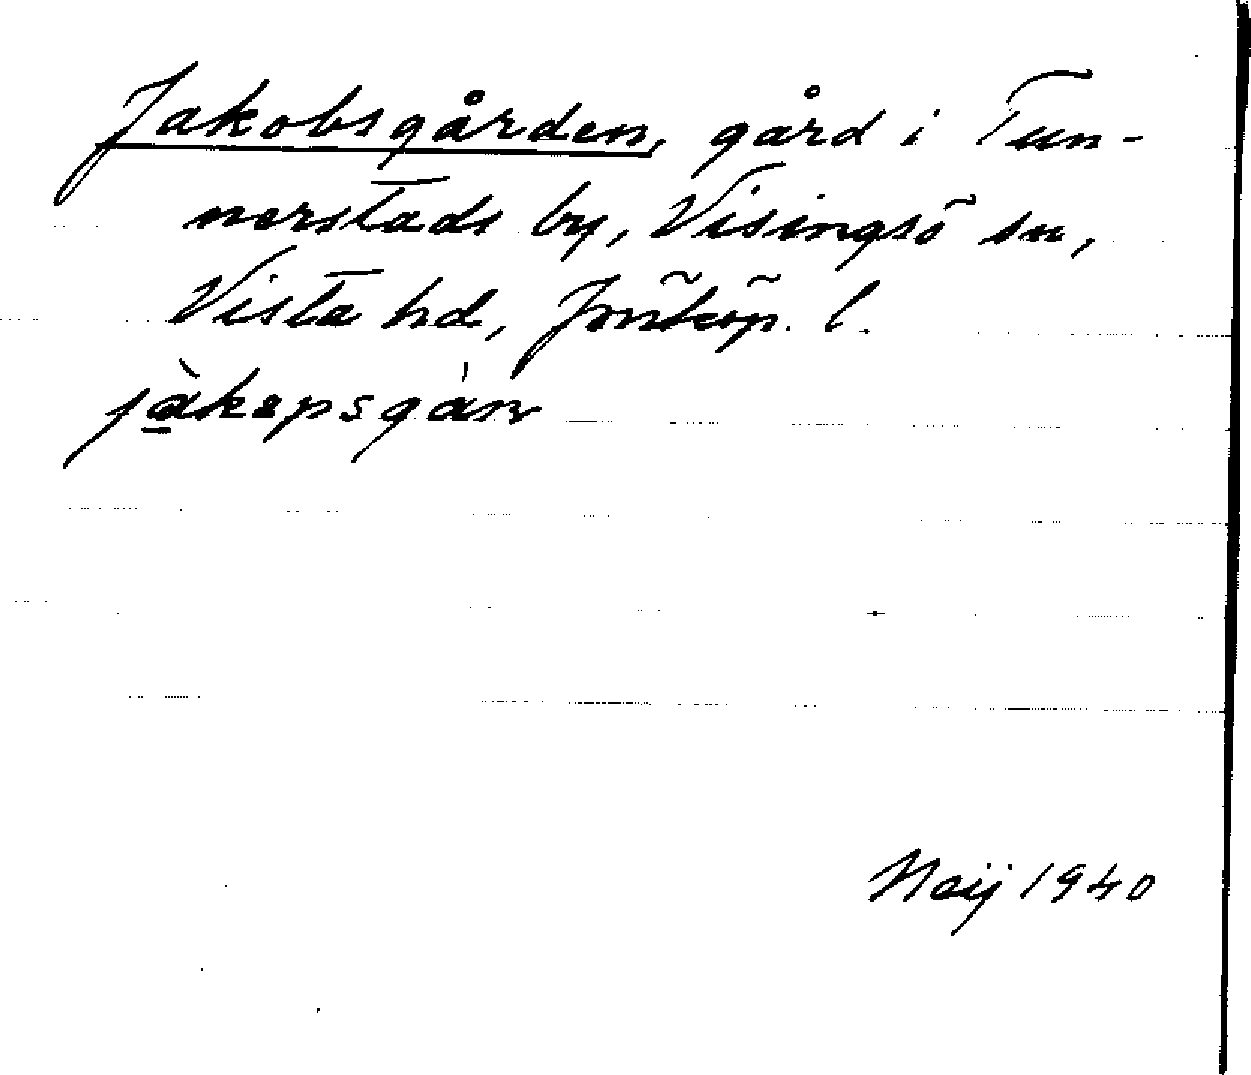 Jakobsgården, gård i Tun-
nerstads by, Visingsö sn,
Vista hd, Jönköp. l.
jàkəpsgán
Neij 1940